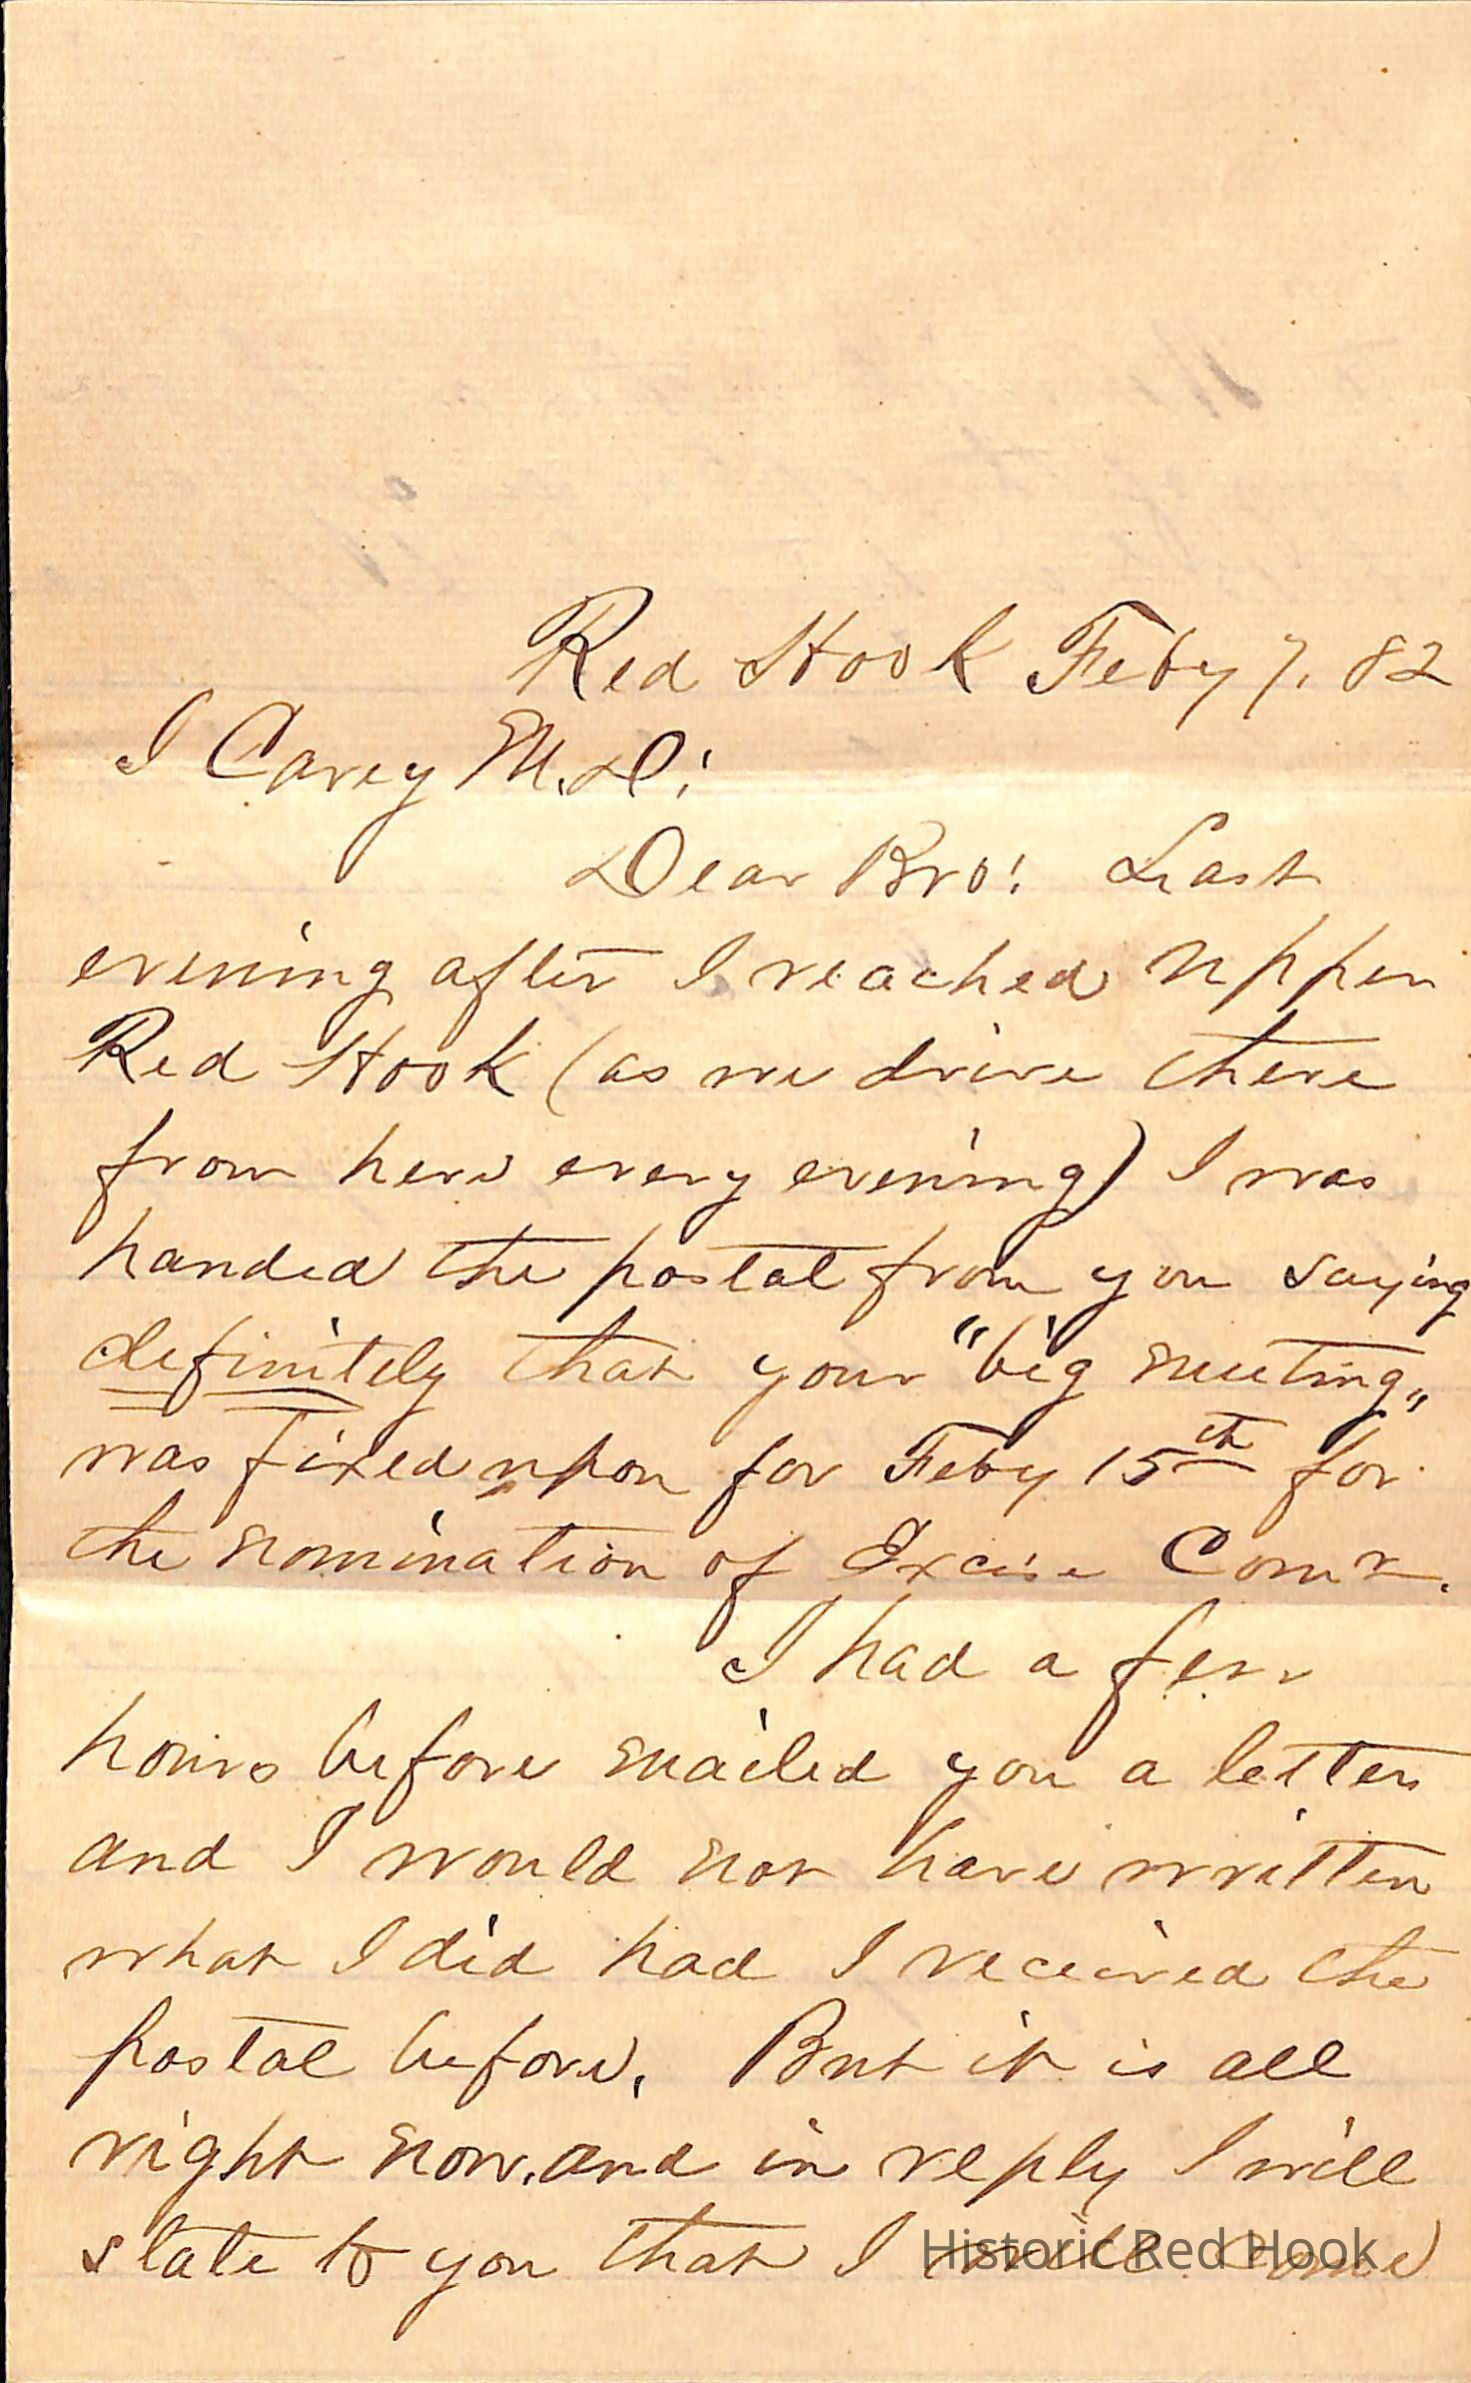 Red Hook Feby 7. 82
I Carey M.D:
Dear Bro! Last
evening after I reached upper
Red Hook (as we drive there
from here every evening) I was
handed the postal from you saying
definitely that your "big meeting"
was fixed upon for Feby 15th for
the nomination of Excise Comr.
I had a few
hours before mailed you a letter
and I would not have written
what I did had I received the
postal before. But it is all
right now, and in reply I will
state to you that I will come
Historic Red Hook